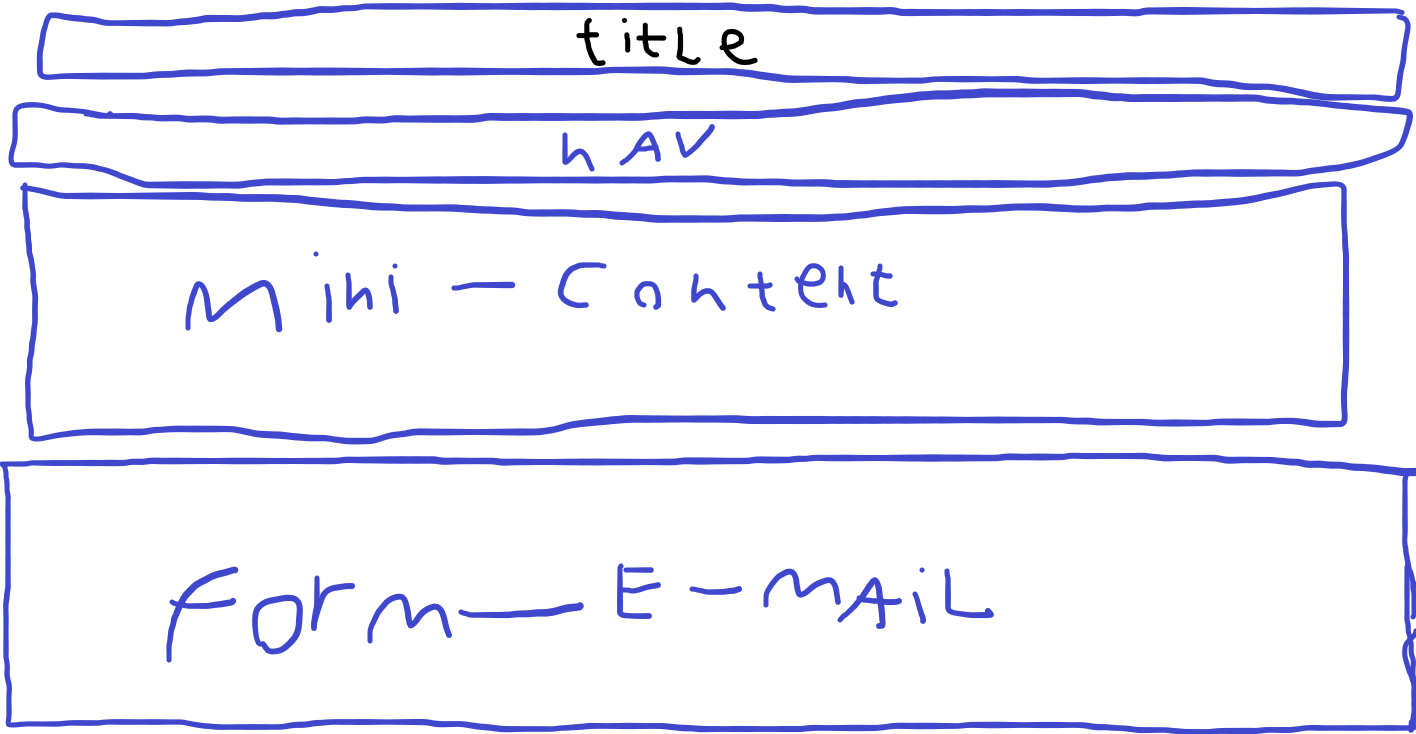 title
nAV
Mini - Content
Form - E - MAiL